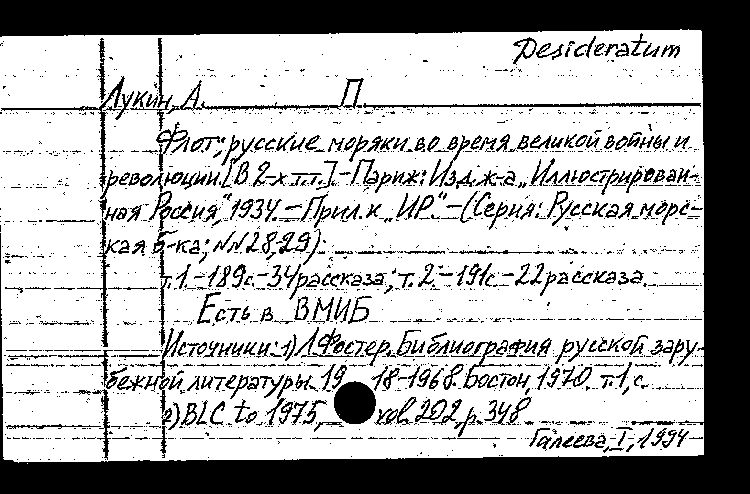 Desideratum
Лукин, А. П.
Флот; русские моряки во время великой войны и
революции. [В 2-х т.т.]. - Париж: Изд. ж-а „Иллюстрирован-
ная Россия", 1934. - Прил. к „ИР". - (Серия: Русская морс-
кая б-ка; NN 28, 29).
т. 1 - 189с. - 34 рассказа; т. 2. - 191с. - 22 рассказа.
Есть в ВМИБ
Источники: 1) Л. Фостер. Библиография русской зару-
бежной литературы. 1918-1968. Бостон, 1970. т. 1, с.
2) BLC to 1975, vol. 202, p. 348
Галеева, I, 1994